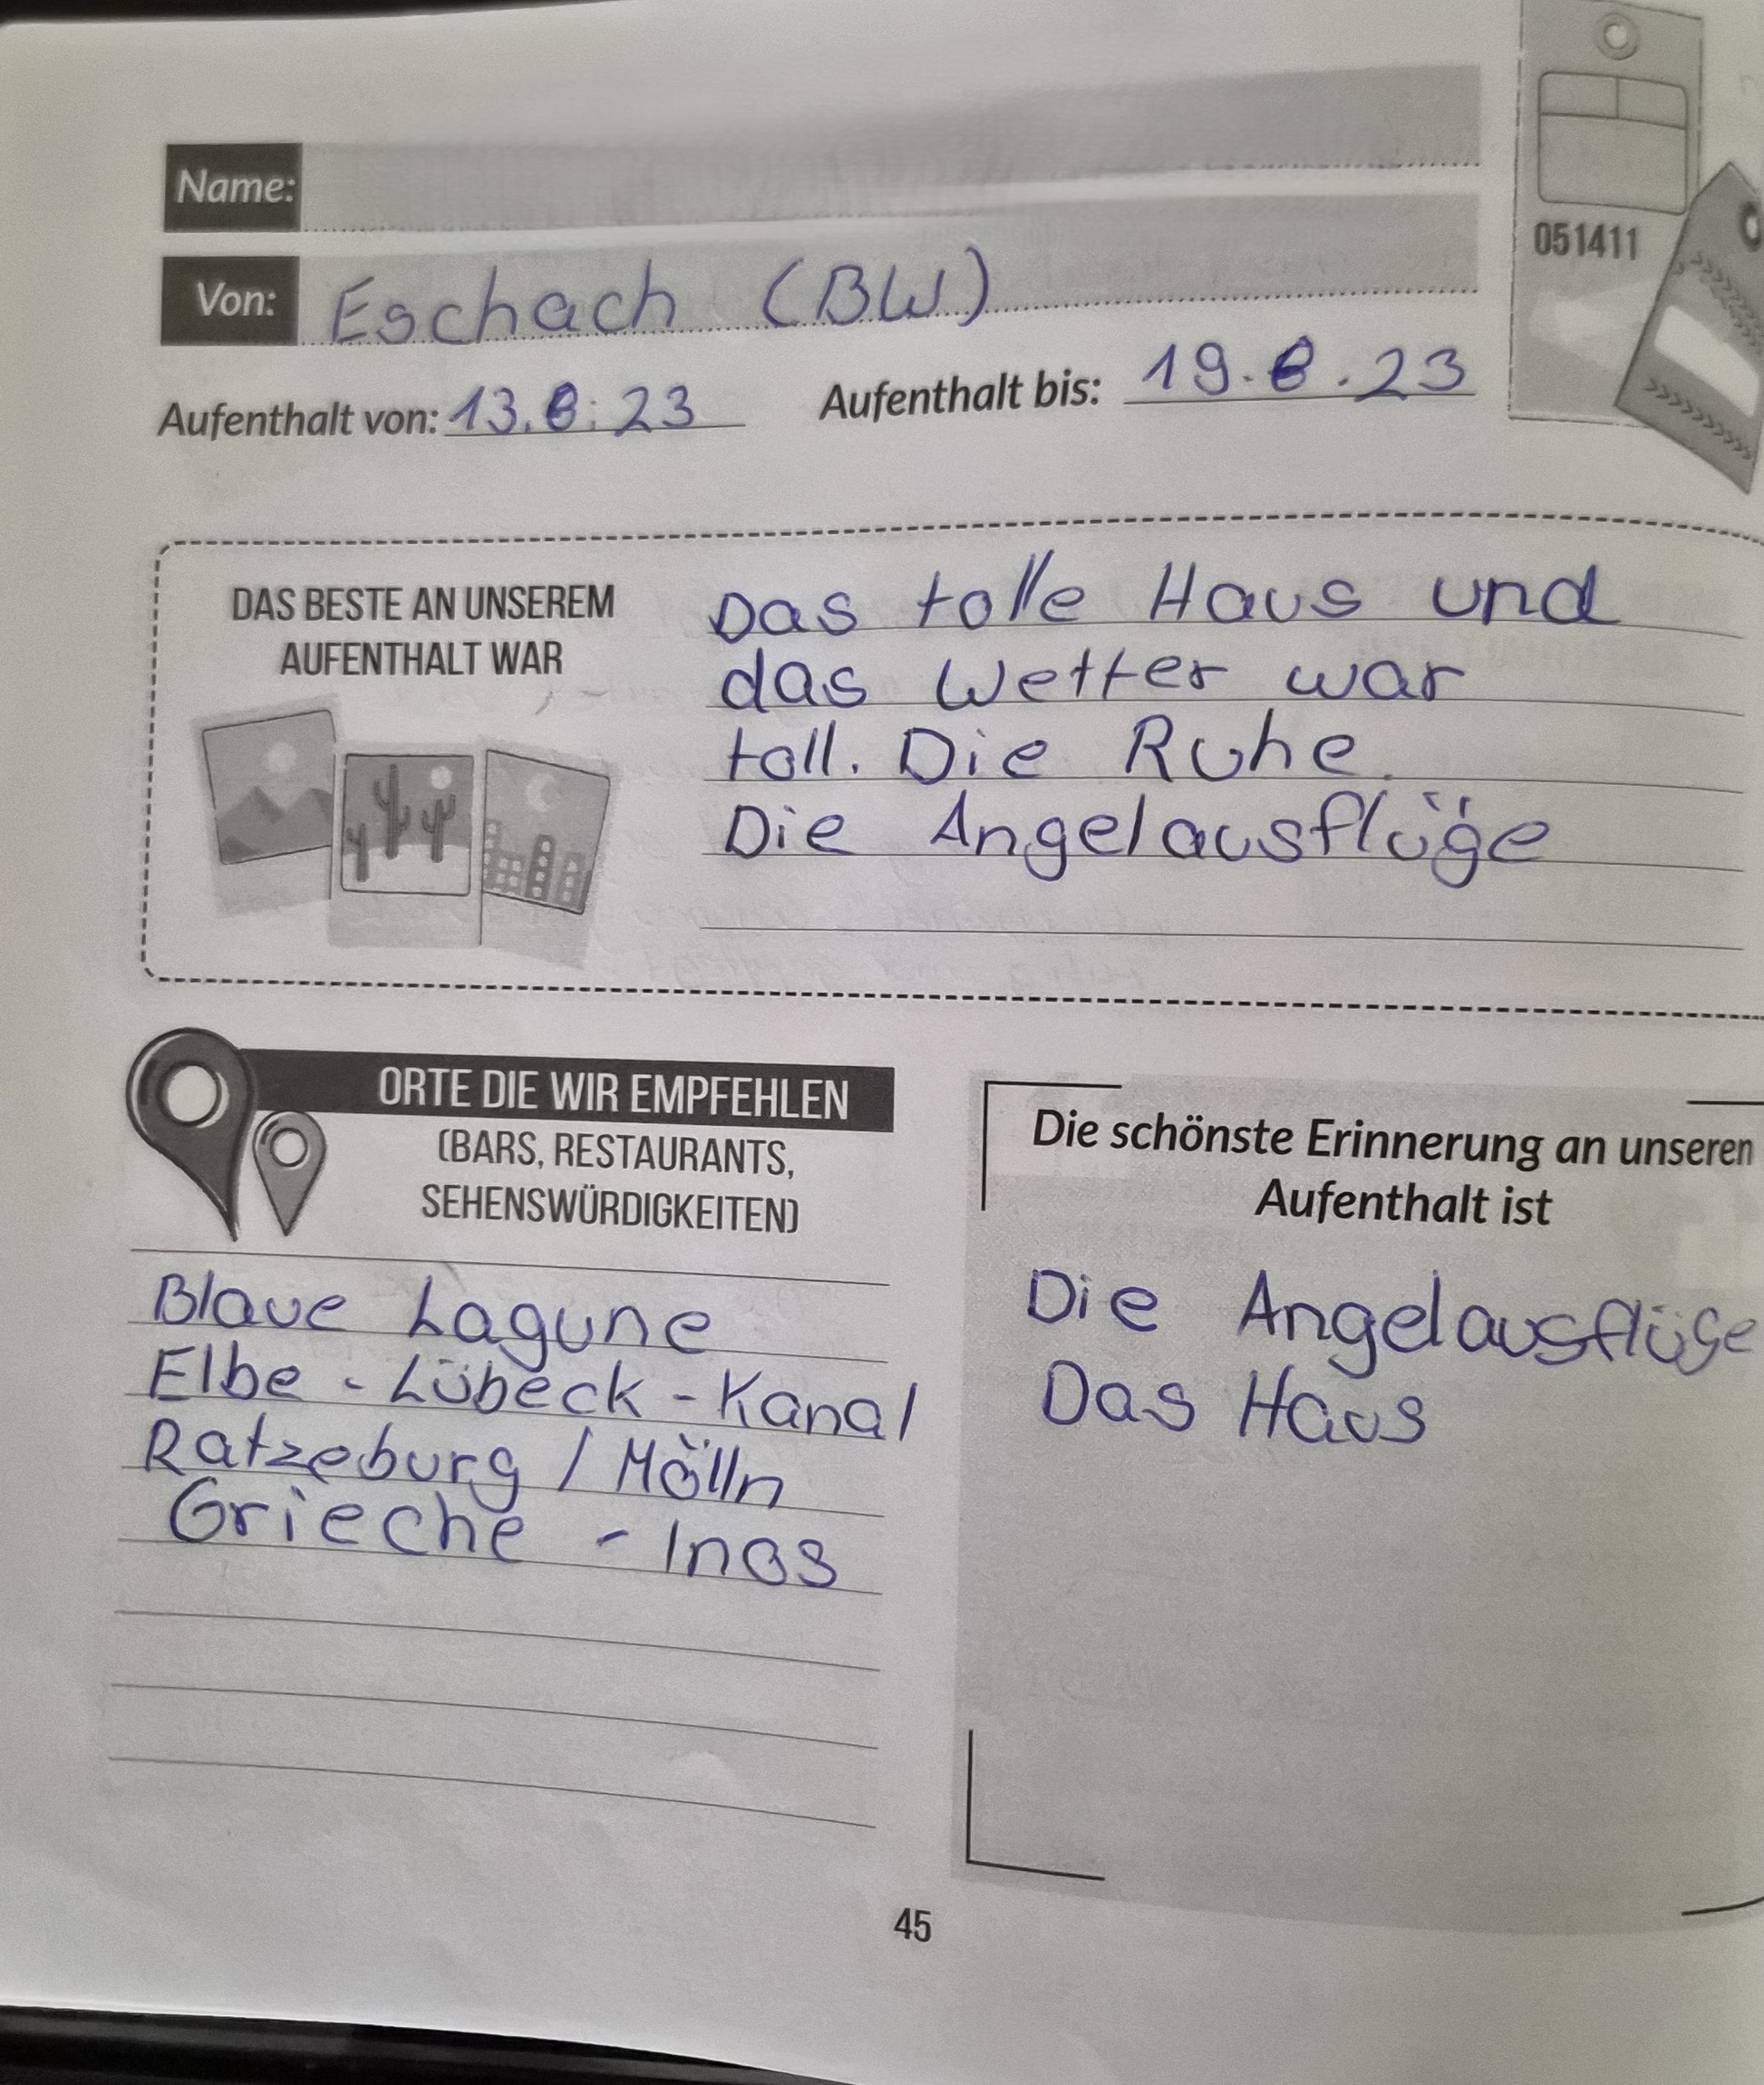 Name:
Von: Eschach (BW)
051411
Aufenthalt von: 13.8.23 Aufenthalt bis: 19.8.23
DAS BESTE AN UNSEREM
AUFENTHALT WAR
Das tolle Haus und
das Wetter war
toll. Die Ruhe.
Die Angelausflüge
ORTE DIE WIR EMPFEHLEN
(BARS, RESTAURANTS,
SEHENSWÜRDIGKEITEN)
Blaue Lagune
Elbe-Lübeck-Kanal
Ratzeburg / Mölln
Grieche - Inos
Die schönste Erinnerung an unseren
Aufenthalt ist
Die Angelausflüge
Das Haus
45